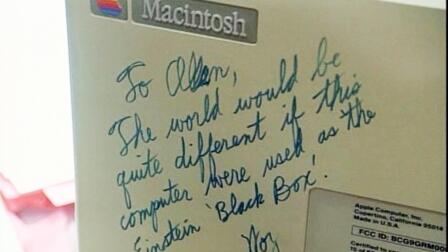 Macintosh
To Allen,
The world would be
quite different if this
computer were used as the
Einstein 'Black Box'.
Woz
Apple Computer, Inc.
Cupertino, California
Made in U.S.A.
FCC ID:
Certified to